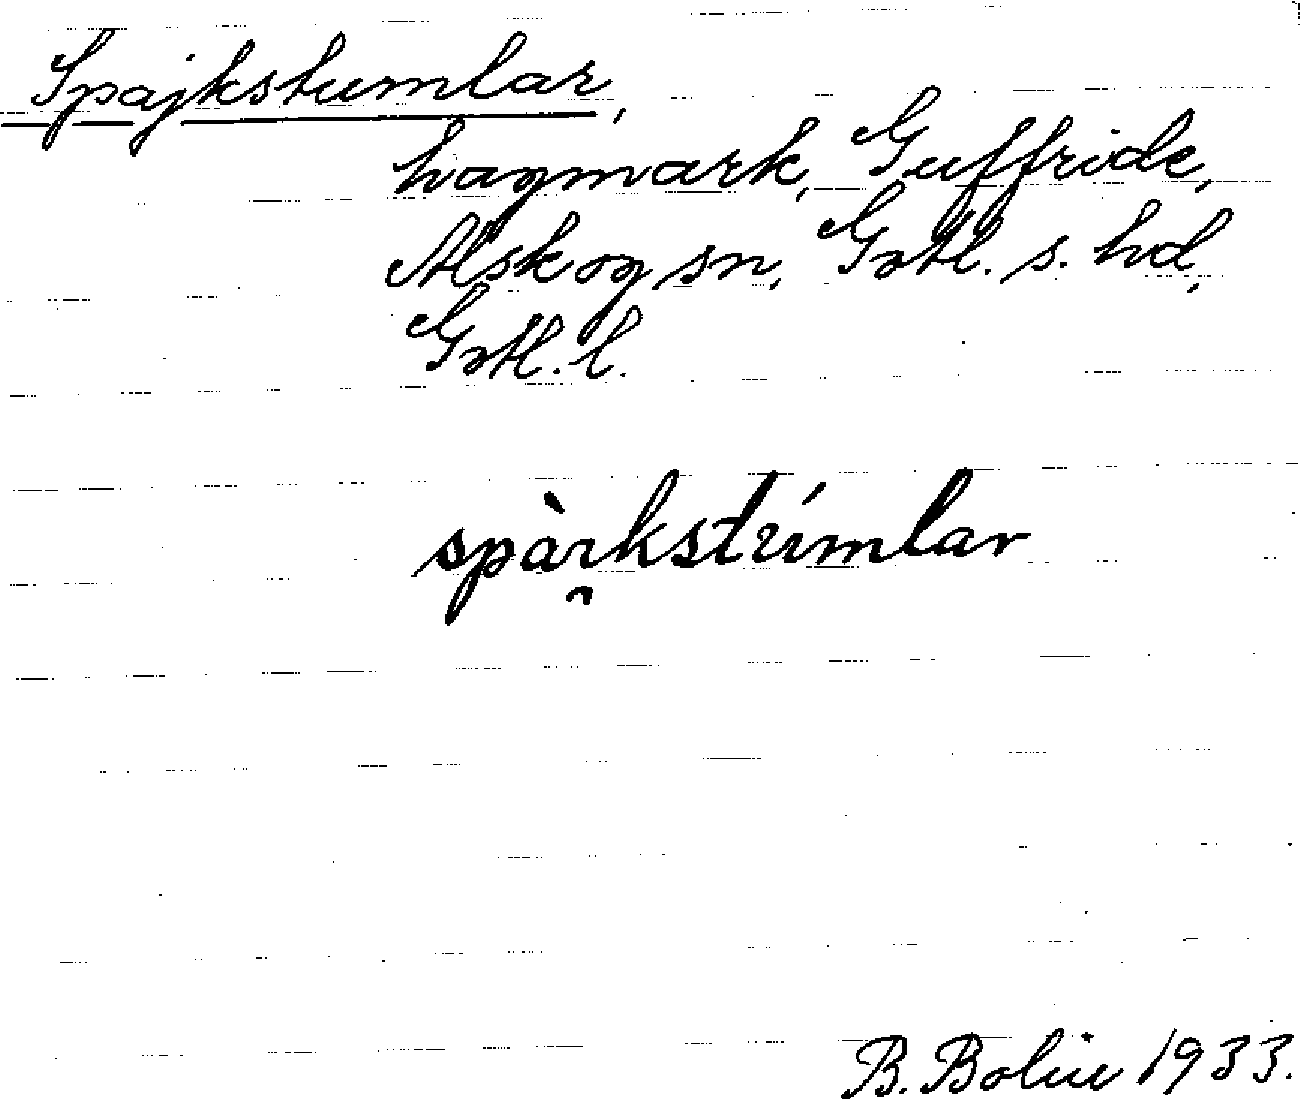 Spajkstumlar,
hagmark, Guffride,
Alskog sn, Gotl. s. hd,
Gotl. l.
spàɪ̯kstúmlar
B. Bolin 1933.